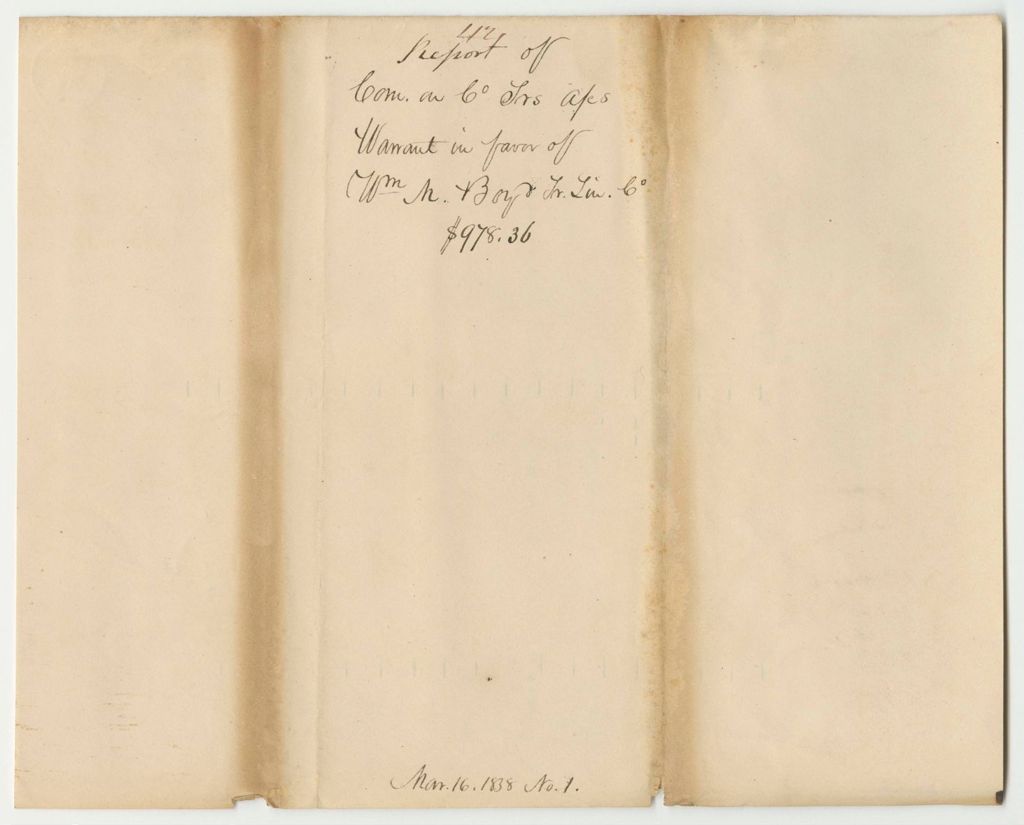 42
Report of
Com. on Co Trs a/cs
Warrant in favor of
Wm M. Boyd Tr. Lin. Co
$978.36
Mar. 16. 1838 No. 1.